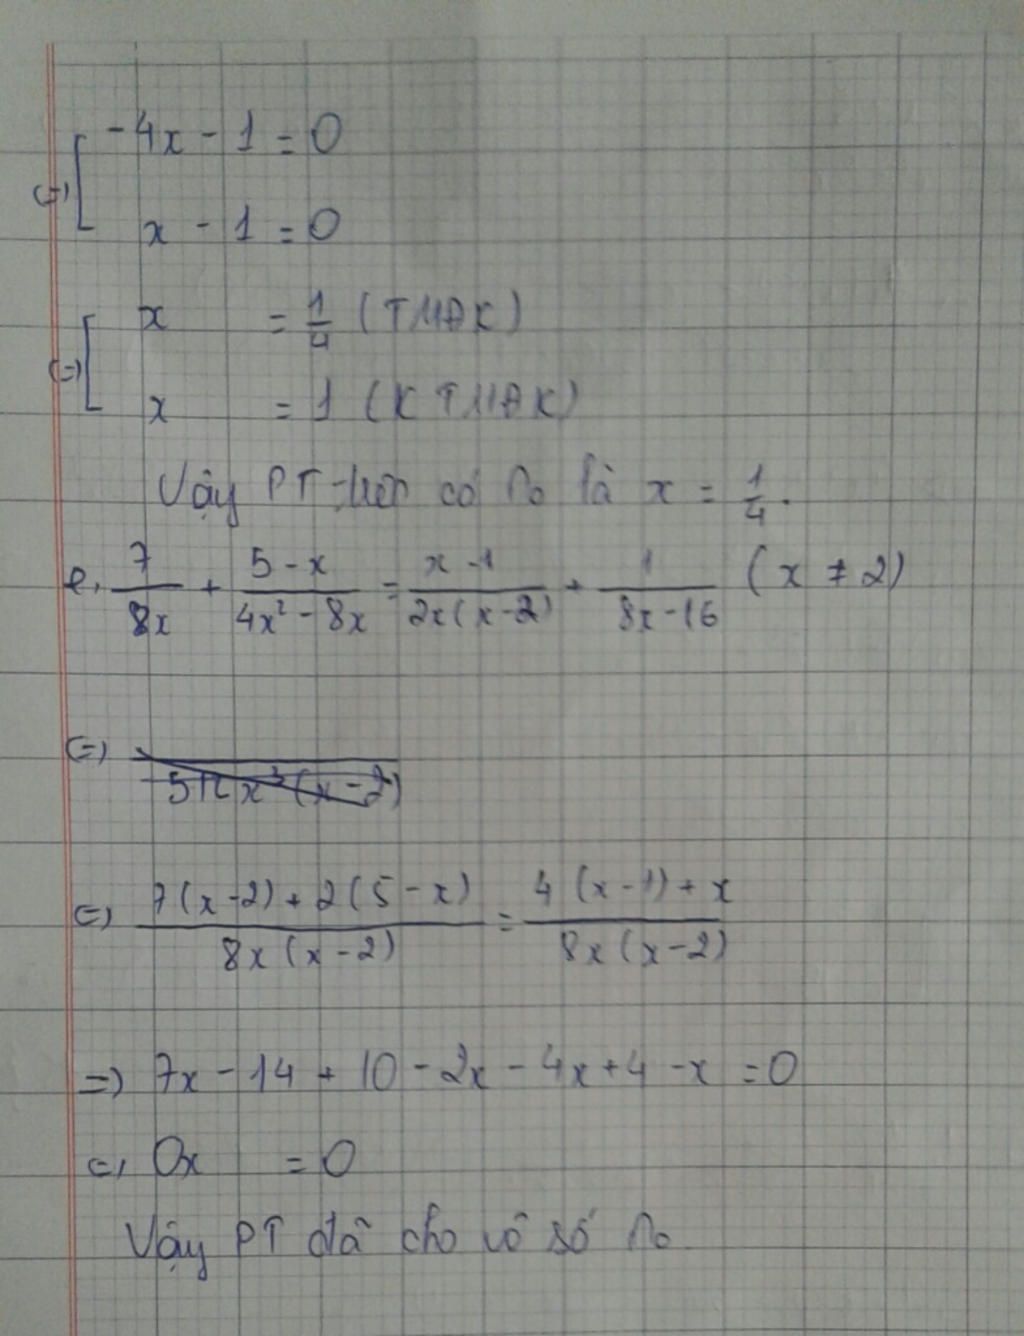 (=) [ -4x - 1 = 0
x - 1 = 0
(=) [ x = 1/4 (TMĐK)
x = 1 (KTMĐK)
Vậy PT trên có n₀ là x = 1/4.
e, 7/8x + (5 - x)/(4x² - 8x) = (x - 1)/(2x(x - 2)) + 1/(8x - 16) (x ≠ 2)
(=)
(=) (7(x - 2) + 2(5 - x))/(8x(x - 2)) = (4(x - 1) + x)/(8x(x - 2))
=) 7x - 14 + 10 - 2x - 4x + 4 - x = 0
(=) 0x = 0
Vậy PT đã cho vô số n₀